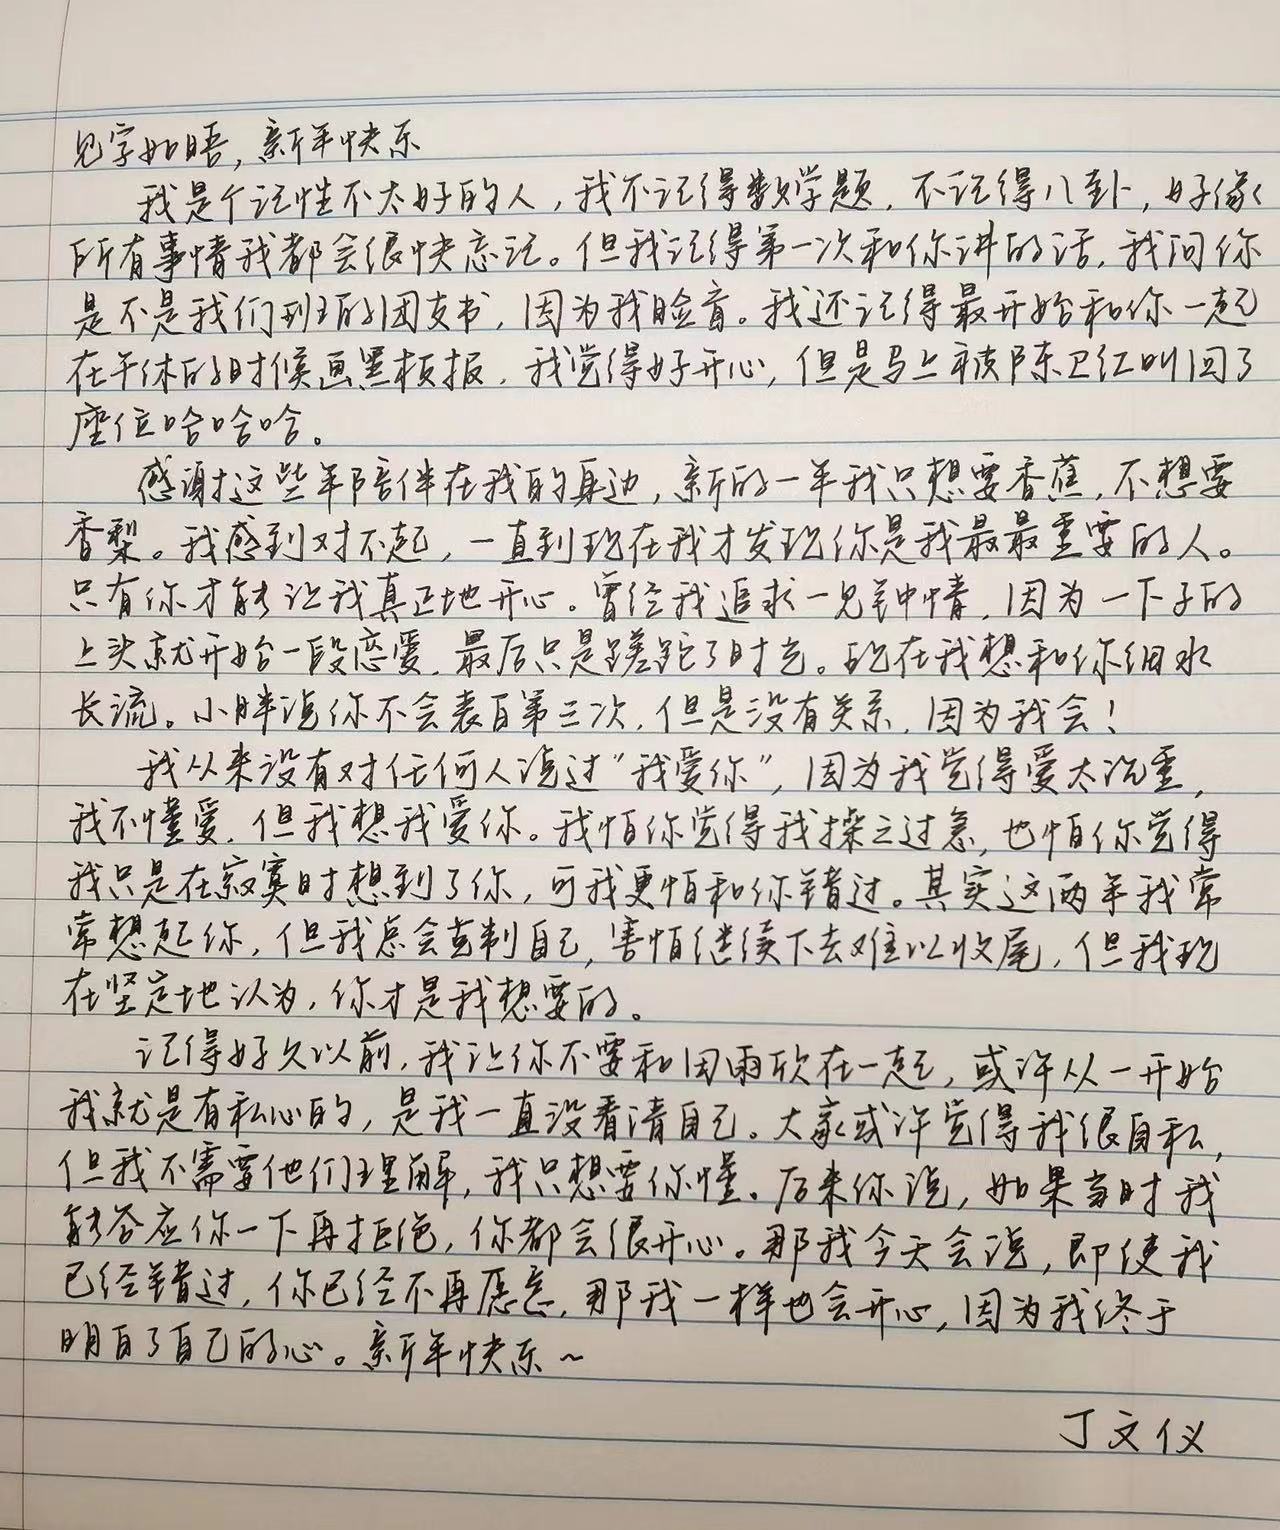 见字如晤，新年快乐
我是个记性不太好的人，我不记得数学题，不记得八卦，好像
所有事情我都会很快忘记。但我记得第一次和你讲的话，我问你
是不是我们班的团支书，因为我脸盲。我还记得最开始和你一起
在午休的时候画黑板报，我觉得好开心，但是马上被陈卫红叫回了
座位哈哈哈。
感谢这些年陪伴在我的身边，新的一年我只想要香蕉，不想要
香梨。我感到对不起，一直到现在我才发现你是我最最重要的人。
只有你才能让我真正地开心。曾经我追求一见钟情，因为一下子的
上头就开始一段恋爱，最后只是蹉跎了时光。现在我想和你细水
长流。小胖说你不会表白第三次，但是没有关系，因为我会！
我从来没有对任何人说过“我爱你”，因为我觉得爱太沉重，
我不懂爱，但我想我爱你。我怕你觉得我操之过急，也怕你觉得
我只是在寂寞时想到了你，可我更怕和你错过。其实这两年我常
常想起你，但我总会克制自己，害怕继续下去难以收尾，但我现
在坚定地认为，你才是我想要的。
记得好久以前，我让你不要和周雨欣在一起，或许从一开始
我就是有私心的，是我一直没看清自己。大家或许觉得我很自私，
但我不需要他们理解，我只想要你懂。后来你说，如果当时我
能答应你一下再拒绝，你都会很开心。那我今天会说，即使我
已经错过，你已经不再愿意，那我一样也会开心，因为我终于
明白了自己的心。新年快乐～
丁文仪